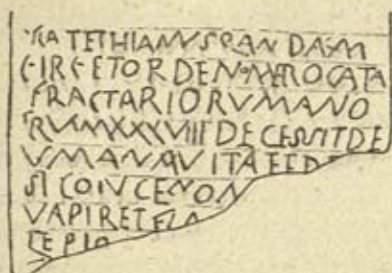 TATETHIANVS CANDAM
CIRCETOR DE NVMERO CATA
FRACTARIORVM ANO
RVM XXXVIII DECESSIT DE
VMANA VITA ET DE
SI COIVCE NON
VAPIRETELA
CEPIO